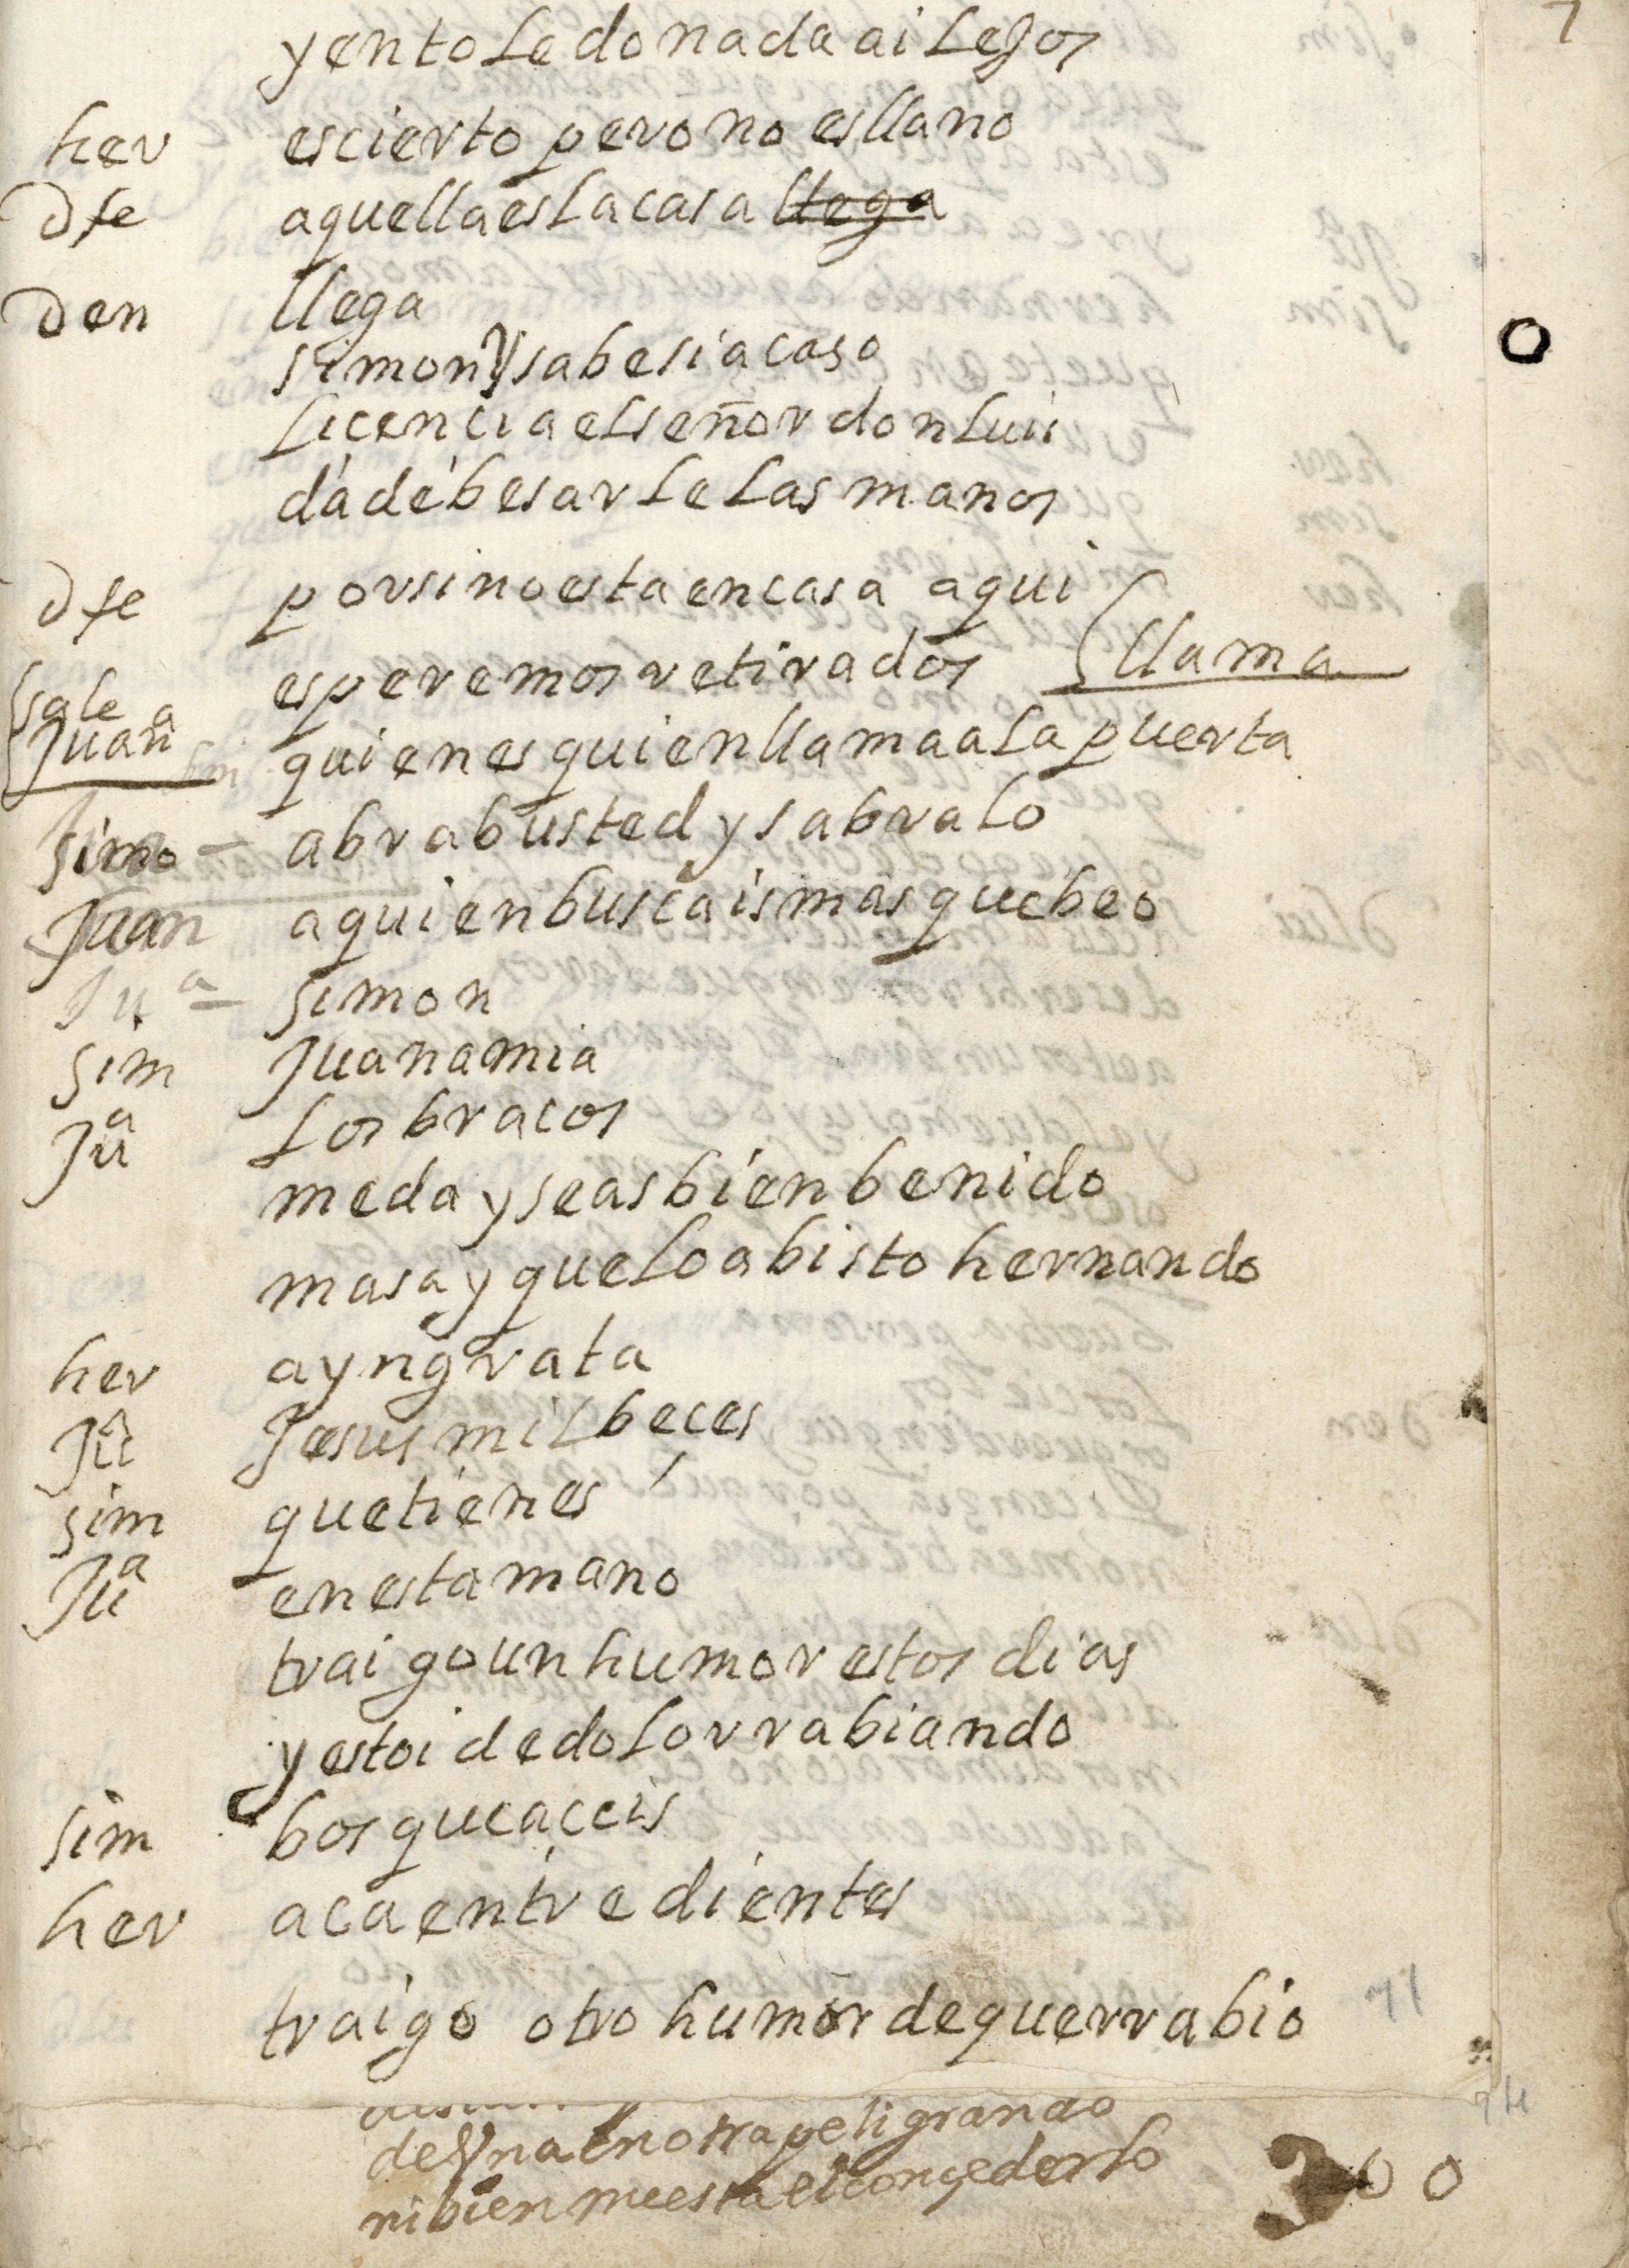 7
yentoledo nada ai lejos
her escierto pero no es llano
Dfe aquella es la casa llega
Den llega
simon y sabe si acaso
licencia el señor don luis
dá dé besarle las manos
Dfe por si no esta en casa aqui
esperemos retirados llama
sale Juana quien es quien llama a la puerta
simo abra busted y sabralo
Juan a quien buscais mas que beo
Jua simon
sim Juana mia
Jua los bracos
me da y seas bien benido
mas ay que lo a bisto hernando
her a yngrata
Jua Jesus mil beces
sim que tienes
Jua en esta mano
traigo un humor estos dias
y estoi de dolor rabiando
sim bos que aceis
her aca entre dientes
traigo otro humor de que rrabio
71
de una en otra peligrando
ni bien me esta el concederlo